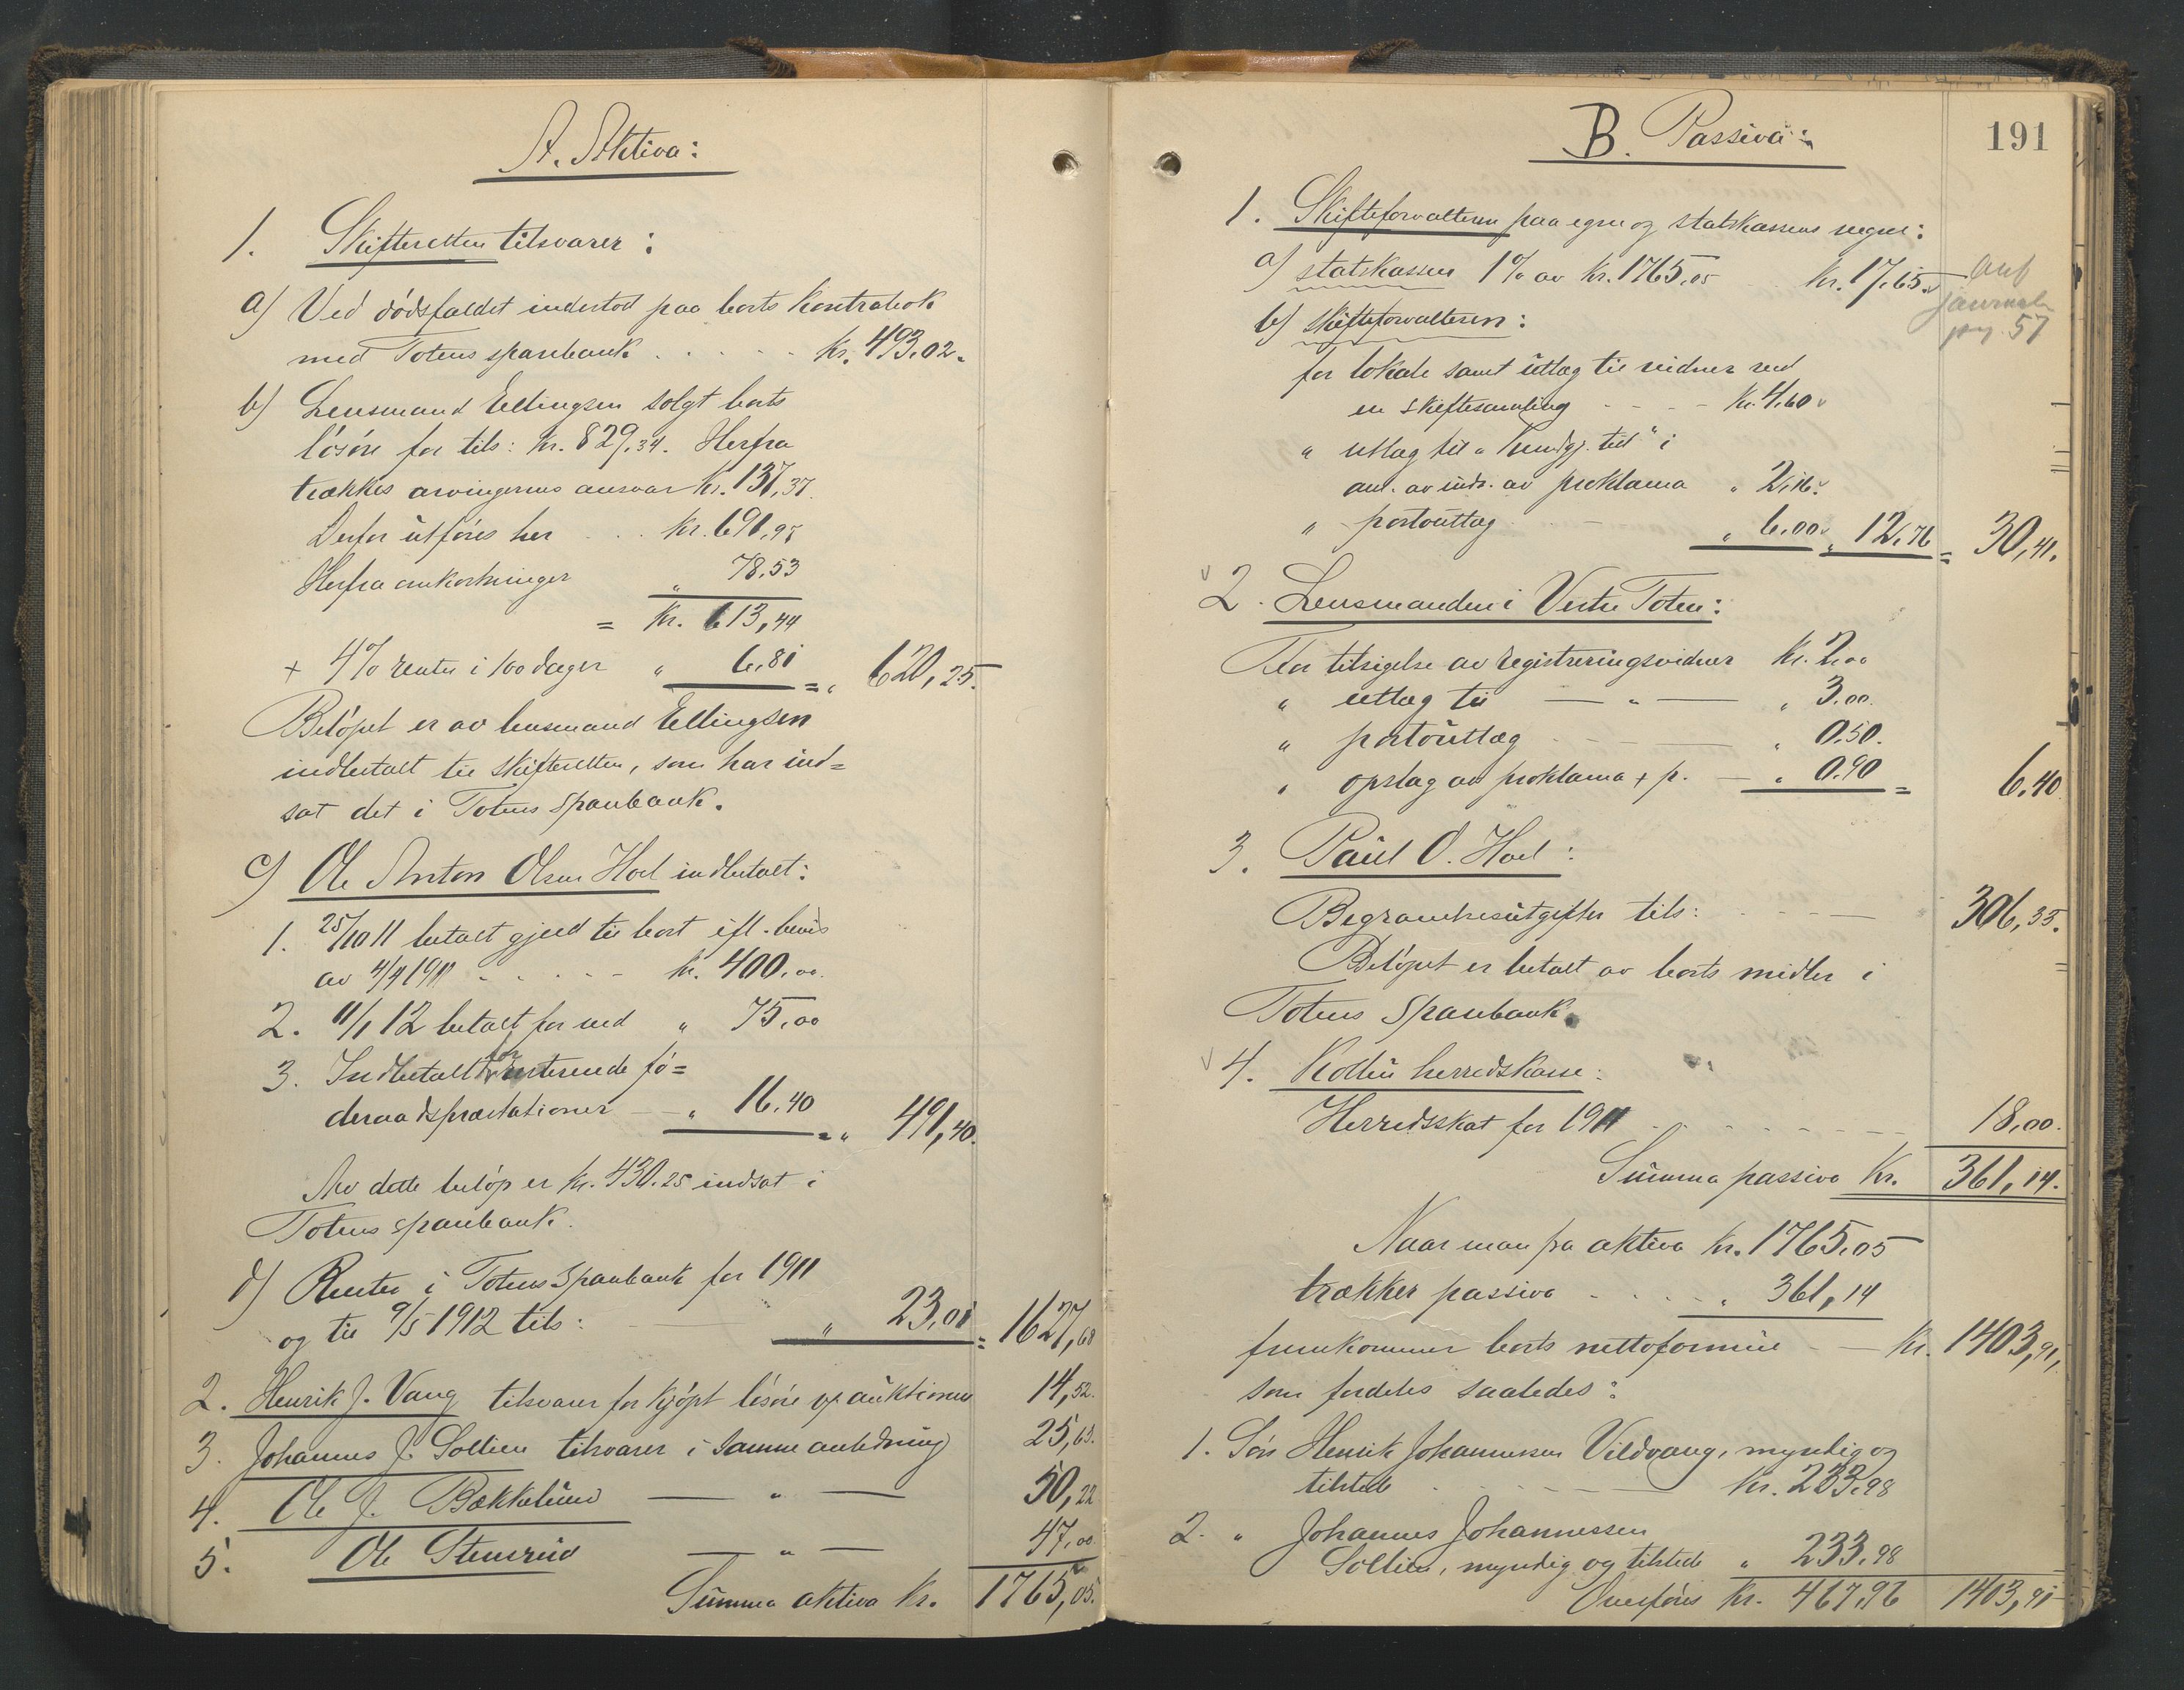 A. Aktiva:
1. Skifteretten tilsvarer:
a) Ved dödsfaldet indestod paa boets Kontrabok
med Totens sparebank . . . . . Kr. 493.02.
b) Lensmand Ellingsen solgt boets
lösöre for tils: Kr. 829,34. Herfra
trækkes arvingernes ansvar Kr. 137,37.
Derfor utföres her . . . Kr. 691,97
Herfra omkostninger " 78.53
= Kr. 613,44
+ 4% renter i 100 dager " 6.81 = " 620,25.
Belöpet er av lensmand Ellingsen
indbetalt til skifteretten, som har ind=
sat det i Totens Sparebank.
c) Ole Anton Olsen Hoel indbetalt:
1. 25/10 11 betalt gjeld til boet ifl. bevis
av 4/4 1911 . . . . . kr. 400.00.
2. 11/1 12 betalt for ved " 75.00
3. Indbetalt for resterende fö=
deraadspræstationer — " 16.40 = " 491,40.
Av dette belöp er Kr. 430.25 indsat i
Totens sparebank.
d) Renter i Totens Sparebank for 1911
og til 9/5 1912 tils: — " 23.01 = 1627,68
2. Henrik J. Vang tilsvarer for kjöpt lösöre på auktionen 14,52.
3. Johannes J. Sollien tilsvarer i samme anledning 25,63.
4. Ole J. Bækkelund — " — 50,22
5. Ole Stensrud — " — 47.00
Summa aktiva Kr. 1765,05.
B. Passiva:
191
1. Skifteforvalteren paa egne og statskassens vegne:
a) statskassen 1% av Kr. 1765.05 Kr. 17.65.
Anf
journal
pag. 57
b) skifteforvalteren:
for lokale samt utlæg til vidner ved
en skiftesamling - - - Kr. 4.60
" utlæg til "Kundgj. tid" i
anl. av indr. av proklama " 2.16.
" portoutlæg - — " 6.00 " 12.76 = 30,41.
2. Lensmanden i Vestre Toten:
For tilsigelse av registreringsvidner Kr. 2.00
" utlæg til — " — " 3.00.
" portoutlæg - — " 0.50.
" opslag av proklama + p. — " 0.90 = 6.40
3. Paul O. Hoel:
Begravelsesutgifter tils: - - — 306,33.
Belöpet er betalt av boets midler i
Totens Sparebank.
4. Kolbu herredskasse:
Herredsskat for 1911 - - - - - 18.00.
Summa passiva Kr. 361,14.
Naar man fra aktiva Kr. 1765.05
trækker passiva - . . . . " 361,14
fremkommer boets nettoformue — Kr. 1403,91,
som fordeles saaledes:
1. Sön Henrik Johannessen Vildvang, myndig og
tilstede - - — Kr. 233.98
2. " Johannes Johannessen
Sollien, myndig og tilstede " 233.98
Overföres Kr. 467.96 1403,91